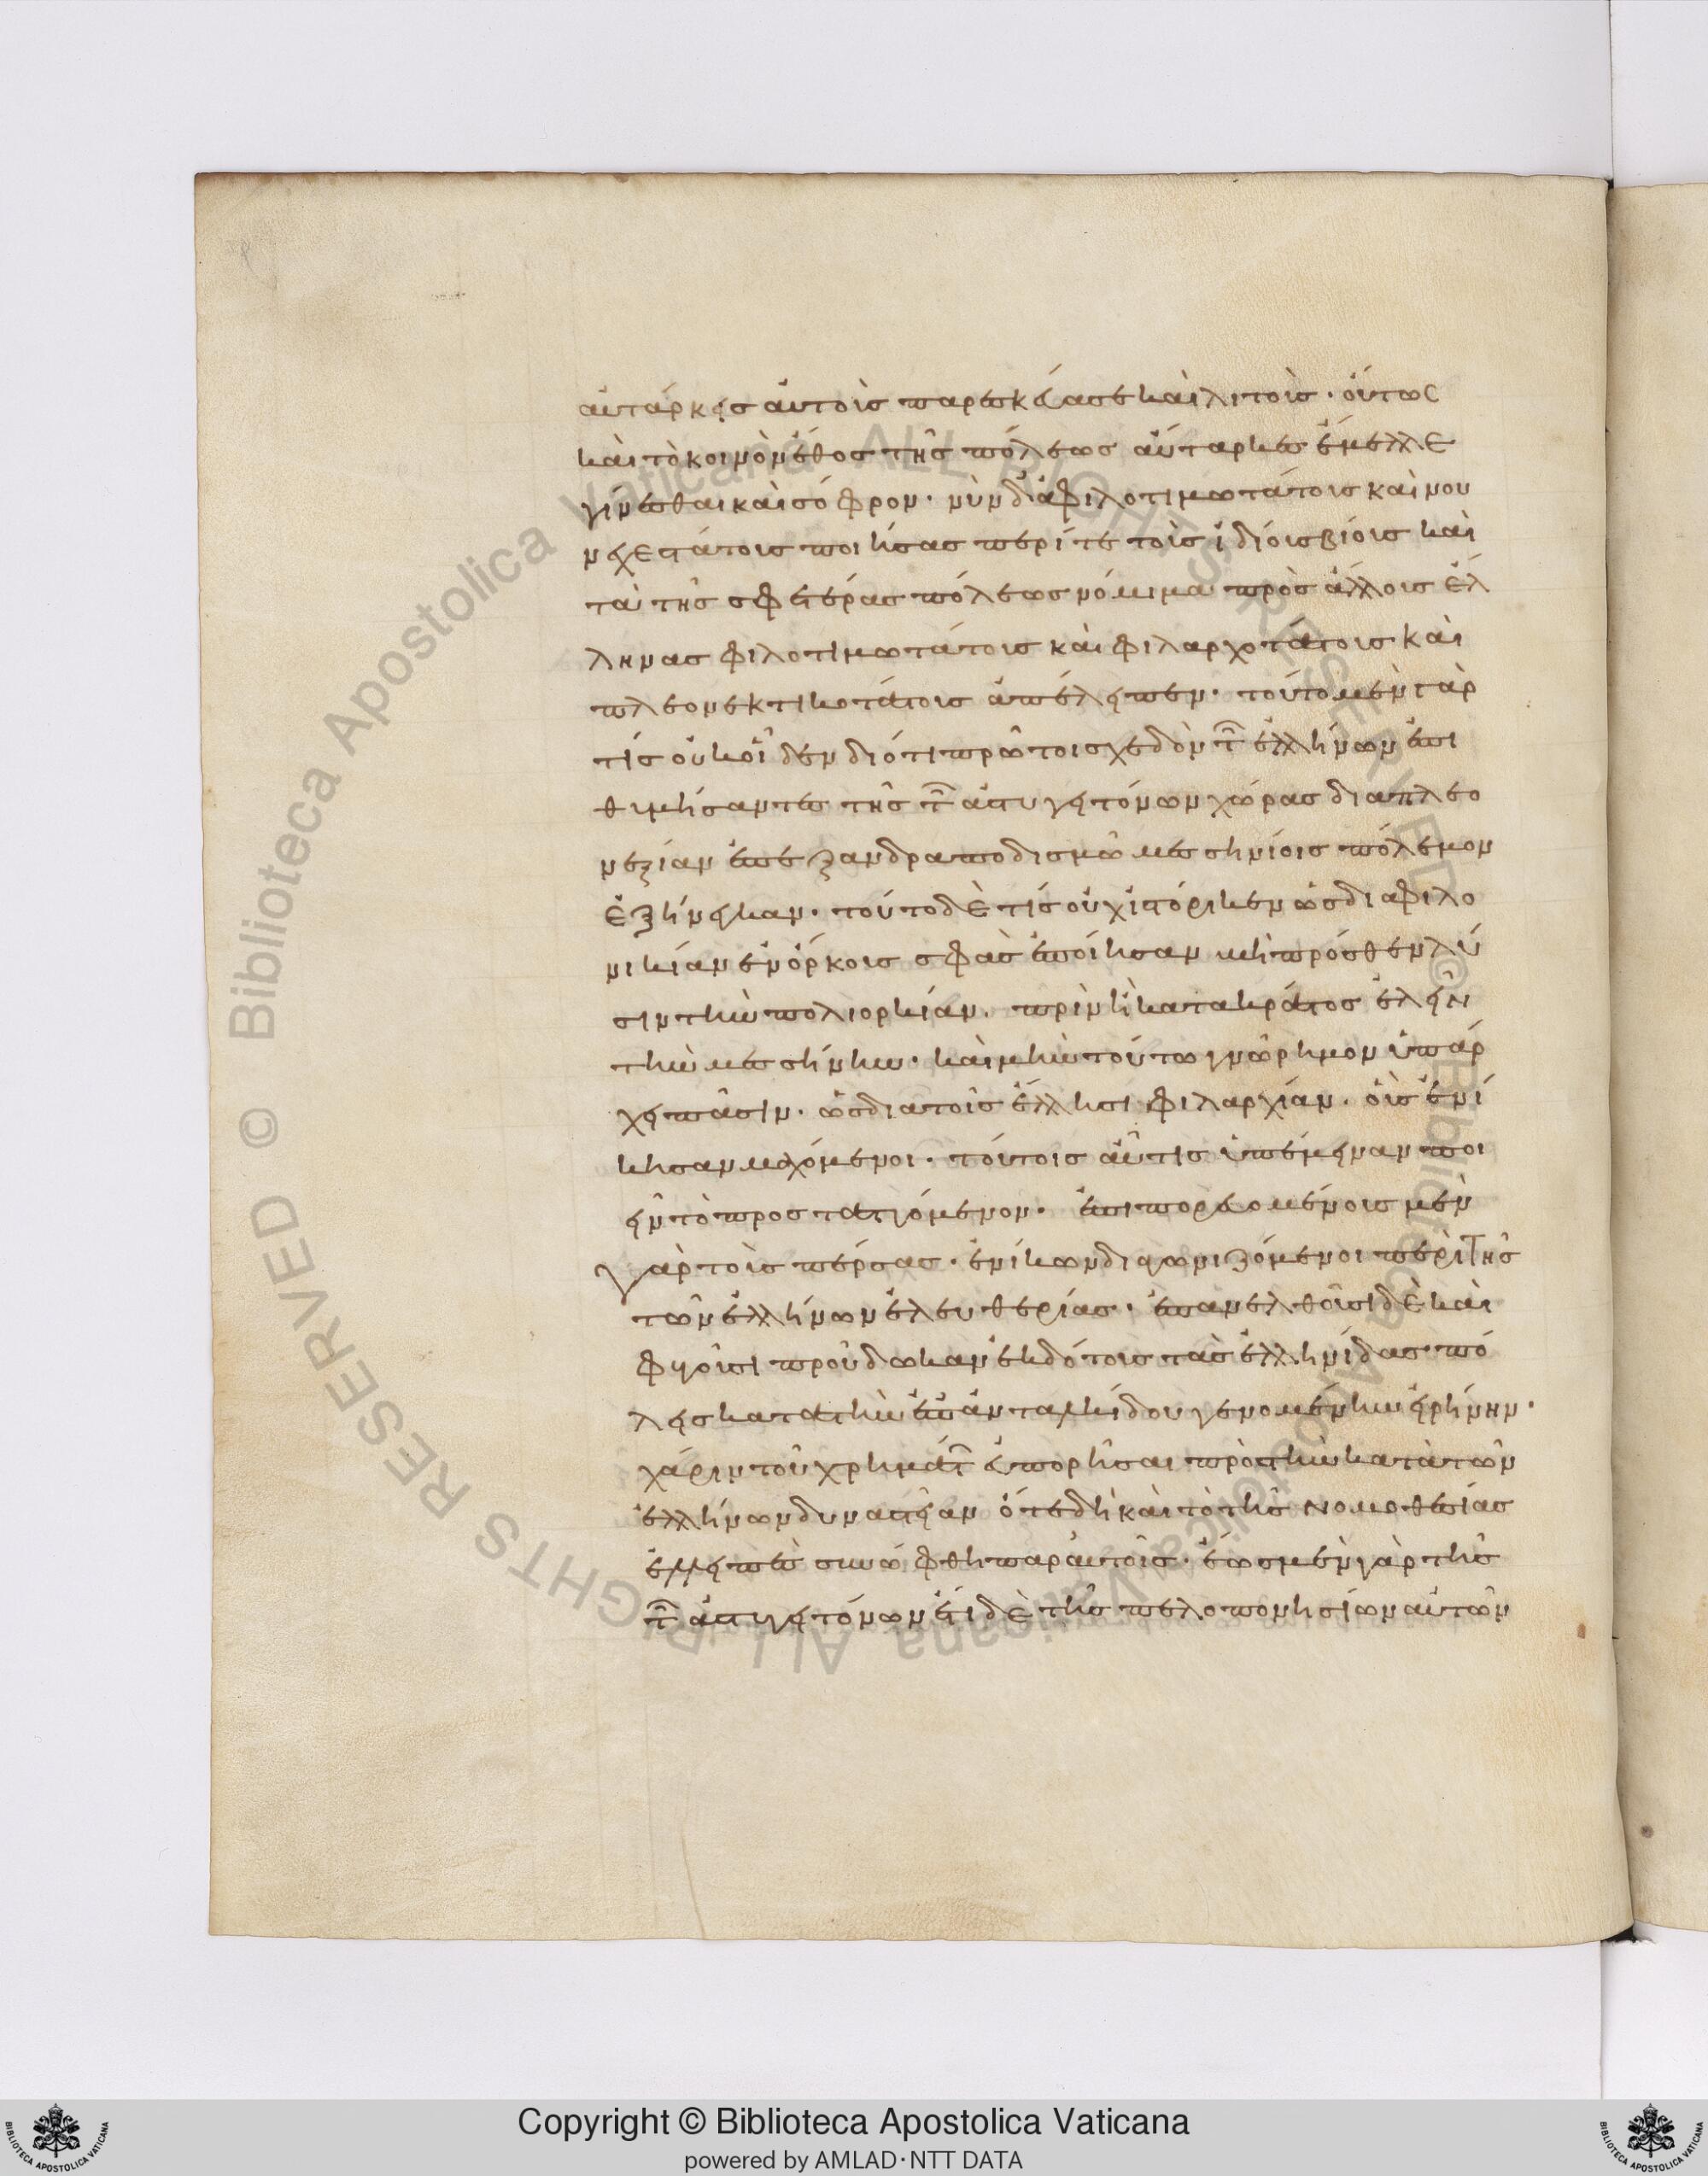 αὐτάρκεις αὐτοὺς παρεσκεύασε καὶ λιτοὺς· οὕτως
καὶ τὸ κοινὸν ἔθος τῆς πόλεως αὔταρκες ἔμελλε
γίνεσθαι καὶ σόφρον· νῦν δ' ἀφιλοτιμωτάτους καὶ νου
νεχεστάτους ποιήσας περί τε τοὺς ἰδίους βίους καὶ
τὰ τῆς σφετέρας πόλεως νόμιμα πρὸς ἄλλους ἕλ
ληνας φιλοτιμωτάτους καὶ φιλαρχοτάτους καὶ
πλεονεκτικοτάτους ἀπέλειπεν· τοῦτο μὲν γὰρ
τίς οὐκ οἶδεν διότι πρῶτοι σχεδὸν τῶν ἑλλήνων ἐπι
θυμήσαντες τῆς τῶν ἀστυγειτόνων χώρας διὰ πλεο
νεξίαν ἐπ' ἐξανδραποδισμῶ μεσσηνίοις πόλεμον
ἐξήνεγκαν· τοῦτο δὲ τίς οὐχ ἱστόρικεν ὡς διὰ φιλο
νικίαν ἐνόρκους σφᾶς ἐποίησαν μὴ πρόσθεν λύ
σιν τὴν πολιορκίαν. πρὶν ἢ κατὰ κράτος ἑλεῖν
τὴν μεσσήνην· καὶ μὴν τούτω γνώρημον ὑπάρ
χει πᾶσιν. ὡς διὰ τοῖς ἕλλησι φιλαρχίαν. οὓς ἐνί
κησαν μαχόμενοι· τούτοις αὖτις ὑπέμειναν ποι
εῖν τὸ προσταττόμενον· ἐπιπορευομένους μὲν
γὰρ τοὺς πέρσας· ἐνίκων διαγωνιζόμενοι περὶ τῆς
τῶν ἑλλήνων ἐλευθερίας· ἐπανελθοῦσι δὲ καὶ
φυγοῦσι προὔδωκαν ἐκδότους τὰς ἑλληνίδας πό
λεις κατὰ τὴν ἐπ' ἀνταλκίδου γενομένην εἰρήνην·
χάριν τοῦ χρημάτων εὐπορῆσαι πρὸς τὴν κατὰ τῶν
ἑλλήνων δυναστείαν ὅτε δὴ καὶ τὸ τῆς νομοθεσίας
ἐλλειπὲς συνώφθη παρ' αὐτοῖς· ἕως μὲν γὰρ τῆς
τῶν ἀστυγειτόνων ἔτι δὲ τῆς πελοποννησίων αὐτῶν